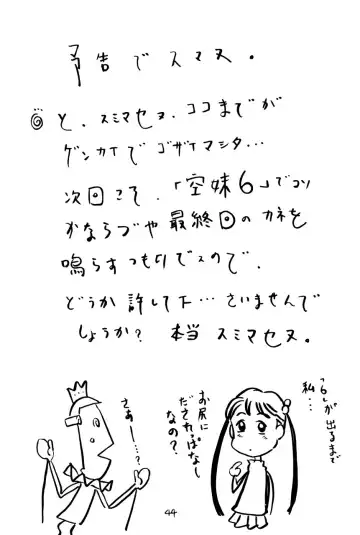 予告でスマヌ。
と、スミマセヌ、ココまでが
ゲンカイでゴザイマシタ…
次回こそ、「空妹6」でコソ
かならづや最終回のカネを
鳴らすつもりでスので、
どうか許して下…さいませんで
しょうか? 本当スミマセヌ。
「6」が出るまで
私…
お尻に
だされっぱなし
なの?
さあー…?
44